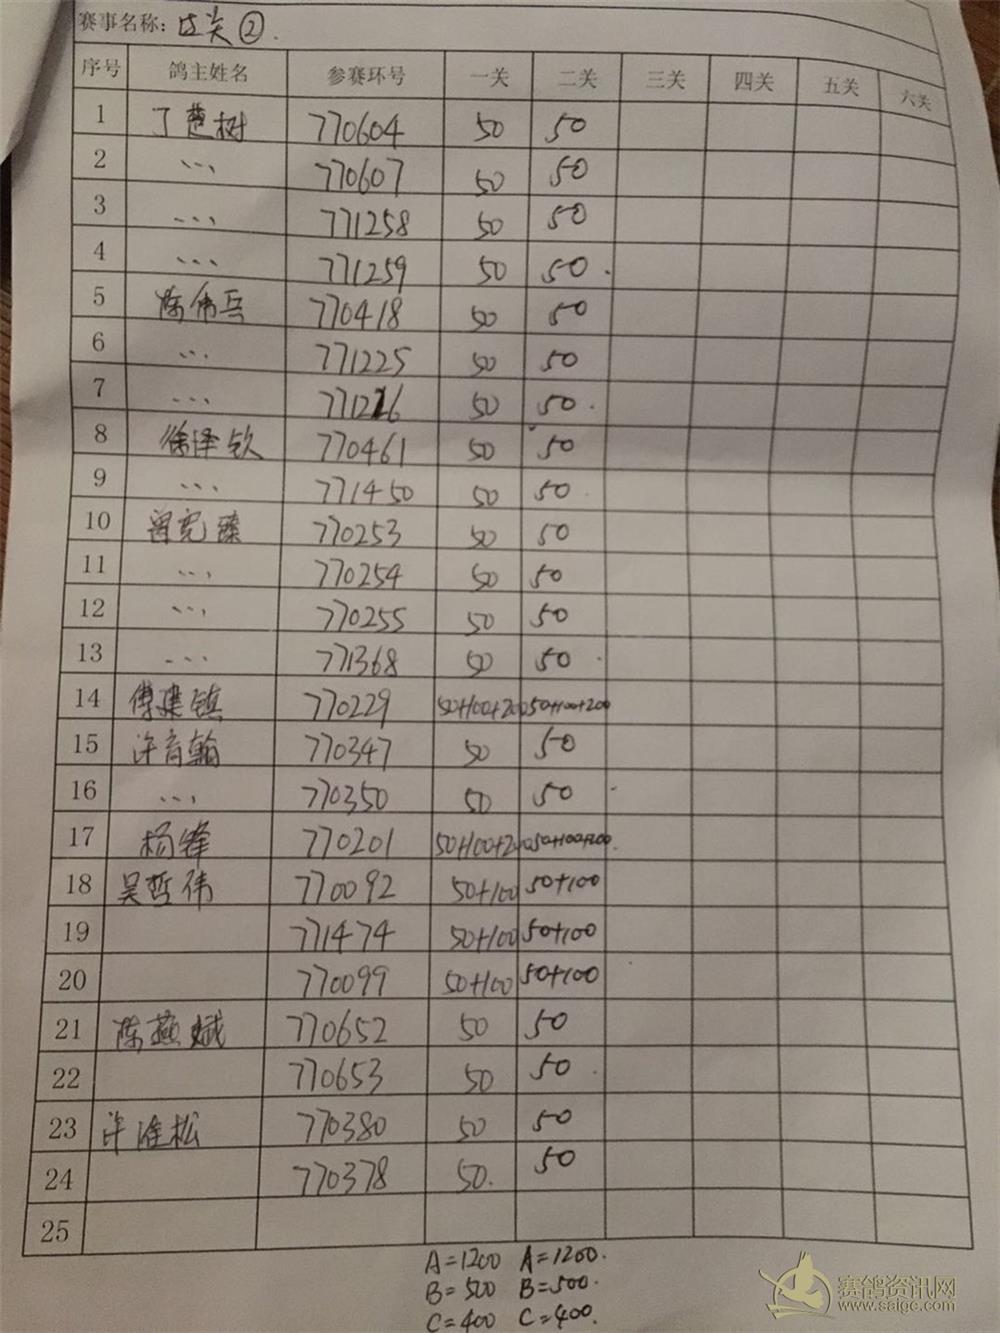 赛事名称：过关②.
序号 鸽主姓名 参赛环号 一关 二关 三关 四关 五关 六关
1 丁楚树 770604 50 50
2 、、、 770607 50 50
3 、、、 771258 50 50
4 、、、 771259 50 50.
5 陈伟兵 770418 50 50
6 、、、 771225 50 50
7 、、、 771226 50 50.
8 徐泽钦 770461 50 50
9 、、、 771450 50 50.
10 曾宪臻 770253 50 50
11 、、、 770254 50 50
12 、、、 770255 50 50
13 、、、 771368 50 50.
14 傅建镇 770229 50+100+200 50+100+200
15 许育翰 770347 50 50
16 、、、 770350 50 50.
17 杨锋 770201 50+100+200 50+100+200.
18 吴哲伟 770092 50+100 50+100
19 771474 50+100 50+100
20 770099 50+100 50+100
21 陈燕斌 770652 50 50
22 770653 50 50.
23 许淮松 770380 50 50
24 770378 50. 50
25
A=1200 A=1200.
B=500 B=500.
C=400 C=400.
赛鸽资讯网
www.saigc.com